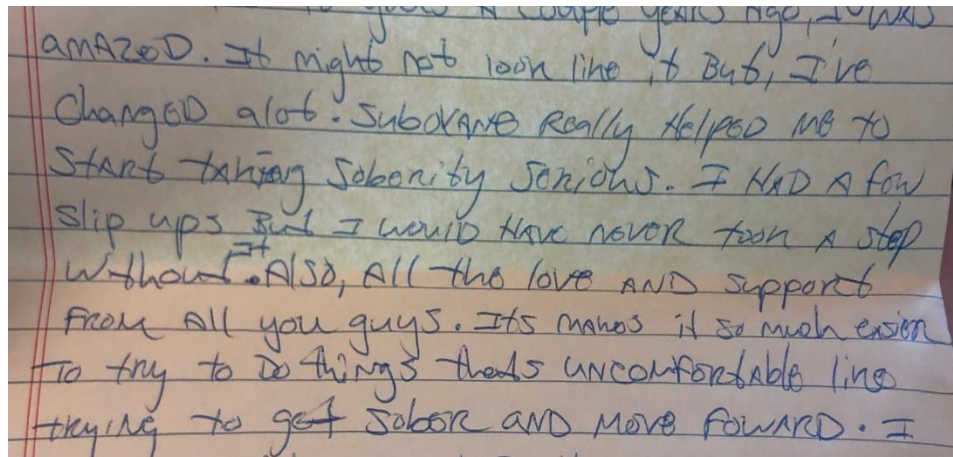 A couple years Ago, I was
amazed. It might not look like it But, I've
changed alot. Suboxane Really Helped me to
Start taking Soberity Serious. I HAD A few
slip ups But I would Have never took A step
without It. Also, All the love AND support
From All you guys. Its makes it so much easier
To try to Do things thats uncomfortable like
trying to get Sober AND Move Foward. I